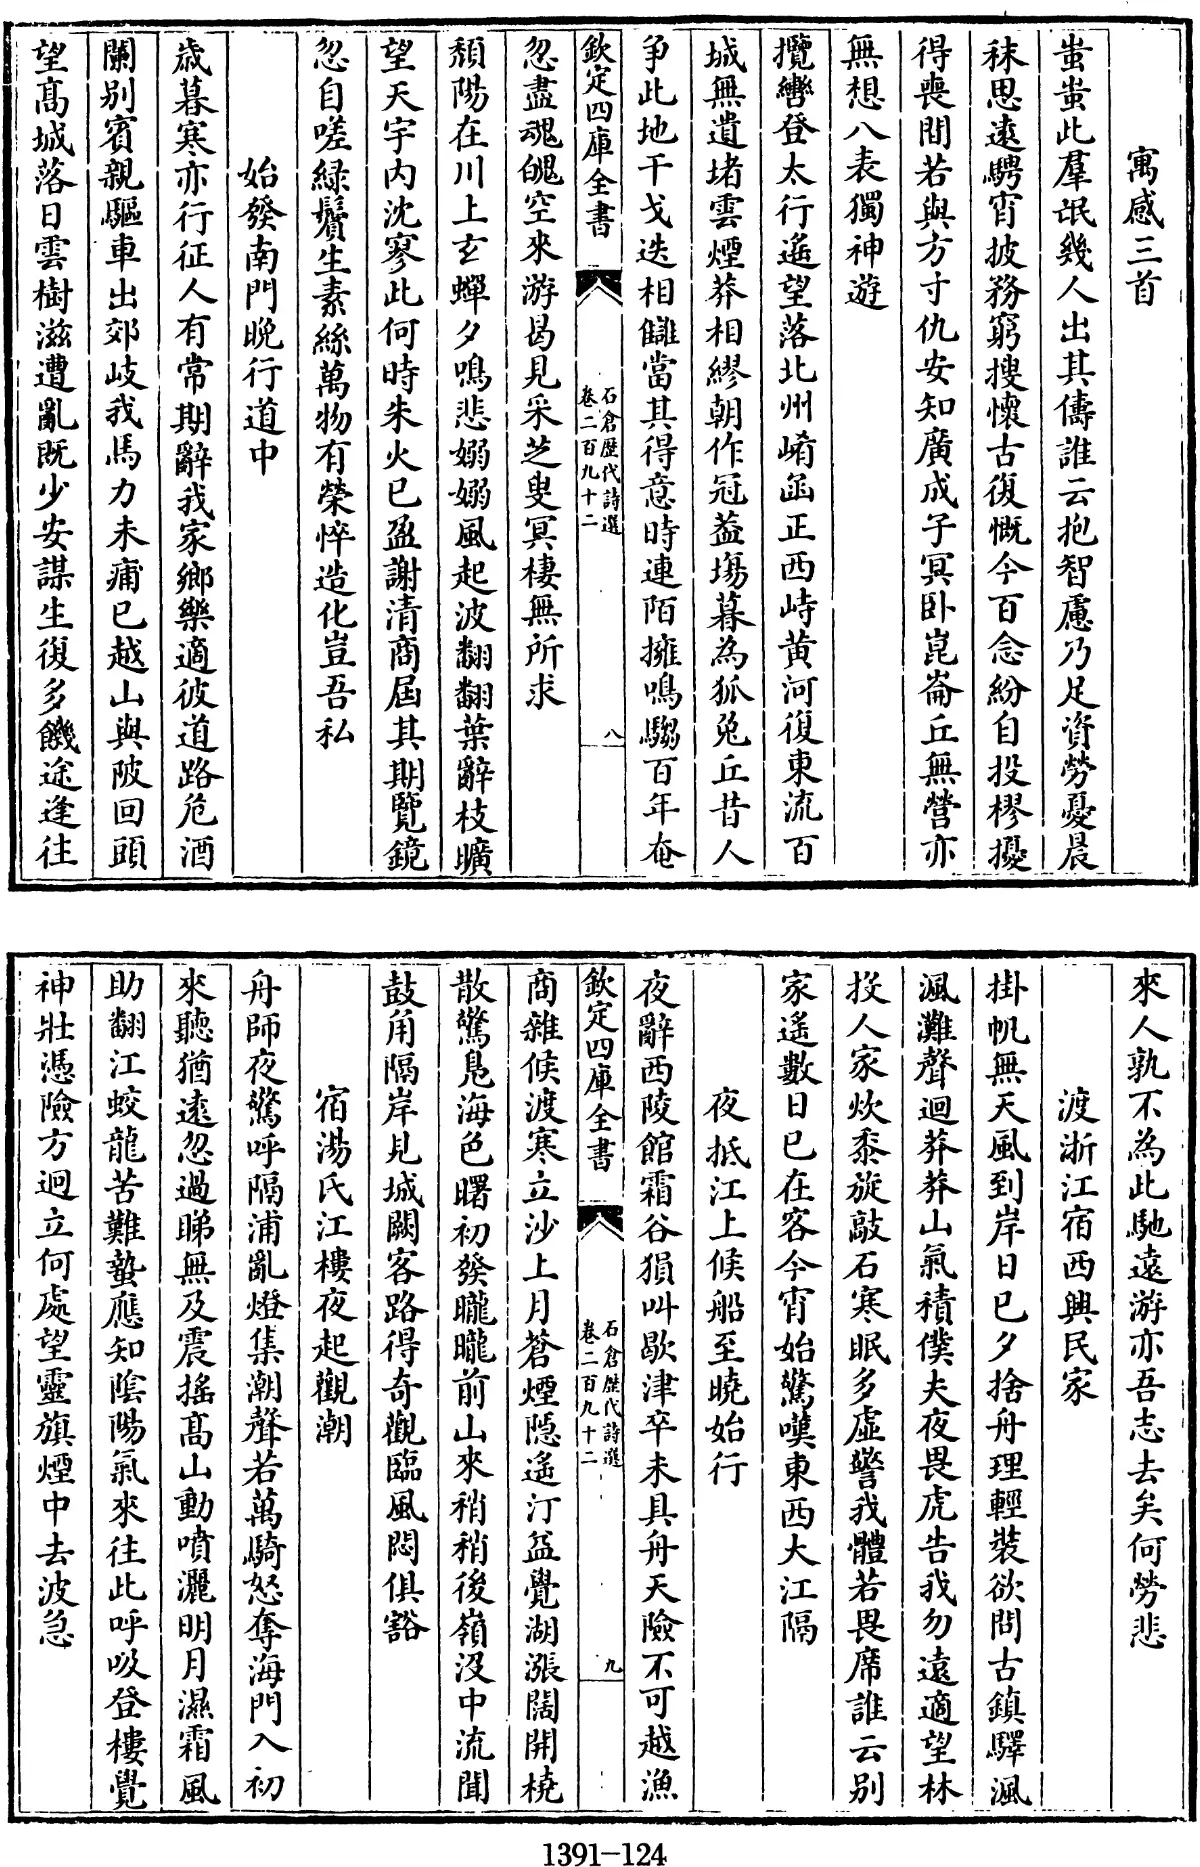 寓感三首
蚩蚩此羣氓幾人出其儔誰云抱智慮乃足資勞憂晨
秣思遠騁宵披務窮搜懷古復慨今百念紛自投樛擾
得喪間若與方寸仇安知廣成子冥卧崑崙丘無營亦
無想八表獨神遊
攬轡登太行遙望落北州崤函正西峙黄河復東流百
城無遺堵雲煙莽相繆朝作冠葢塲暮為狐兎丘昔人
爭此地干戈迭相讎當其得意時連陌擁鳴騶百年奄
欽定四庫全書
石倉歷代詩選
卷二百九十二
八
忽盡魂魄空來游曷見采芝叟冥棲無所求
頹陽在川上玄蟬夕鳴悲嫋嫋風起波翻翻葉辭枝曠
望天宇内沈寥此何時朱火已盈謝清商屆其期覽鏡
忽自嗟緑鬢生素絲萬物有榮悴造化豈吾私
始發南門晚行道中
歲暮寒亦行征人有常期辭我家鄉樂適彼道路危酒
闌别賓親驅車出郊岐我馬力未痡已越山與陂回頭
望髙城落日雲樹滋遭亂既少安謀生復多饑途逢往
來人孰不為此馳遠游亦吾志去矣何勞悲
渡浙江宿西興民家
掛帆無天風到岸日已夕捨舟理輕裝欲問古鎮驛渢
渢灘聲迴莽莽山氣積僕夫夜畏虎告我勿遠適望林
投人家炊黍旋敲石寒眠多虛警我體若畏席誰云别
家遙數日已在客今宵始驚嘆東西大江隔
夜抵江上候船至曉始行
夜辭西陵館霜谷狷叫歇津卒未具舟天險不可越漁
欽定四庫全書
石倉歷代詩選
卷二百九十二
九
商雜候渡寒立沙上月蒼煙隠遙汀益覺湖漲闊開橈
散驚鳬海色曙初發曨曨前山來稍稍後嶺沒中流聞
鼓角隔岸見城闕客路得奇觀臨風悶俱豁
宿湯氏江樓夜起觀潮
舟師夜驚呼隔浦亂燈集潮聲若萬騎怒奪海門入初
來聽猶遠忽過睇無及震搖髙山動噴灑明月濕霜風
助翻江蛟龍苦難蟄應知陰陽氣來往此呼吸登樓覺
神壯憑險方迥立何處望靈旗煙中去波急
1391-124